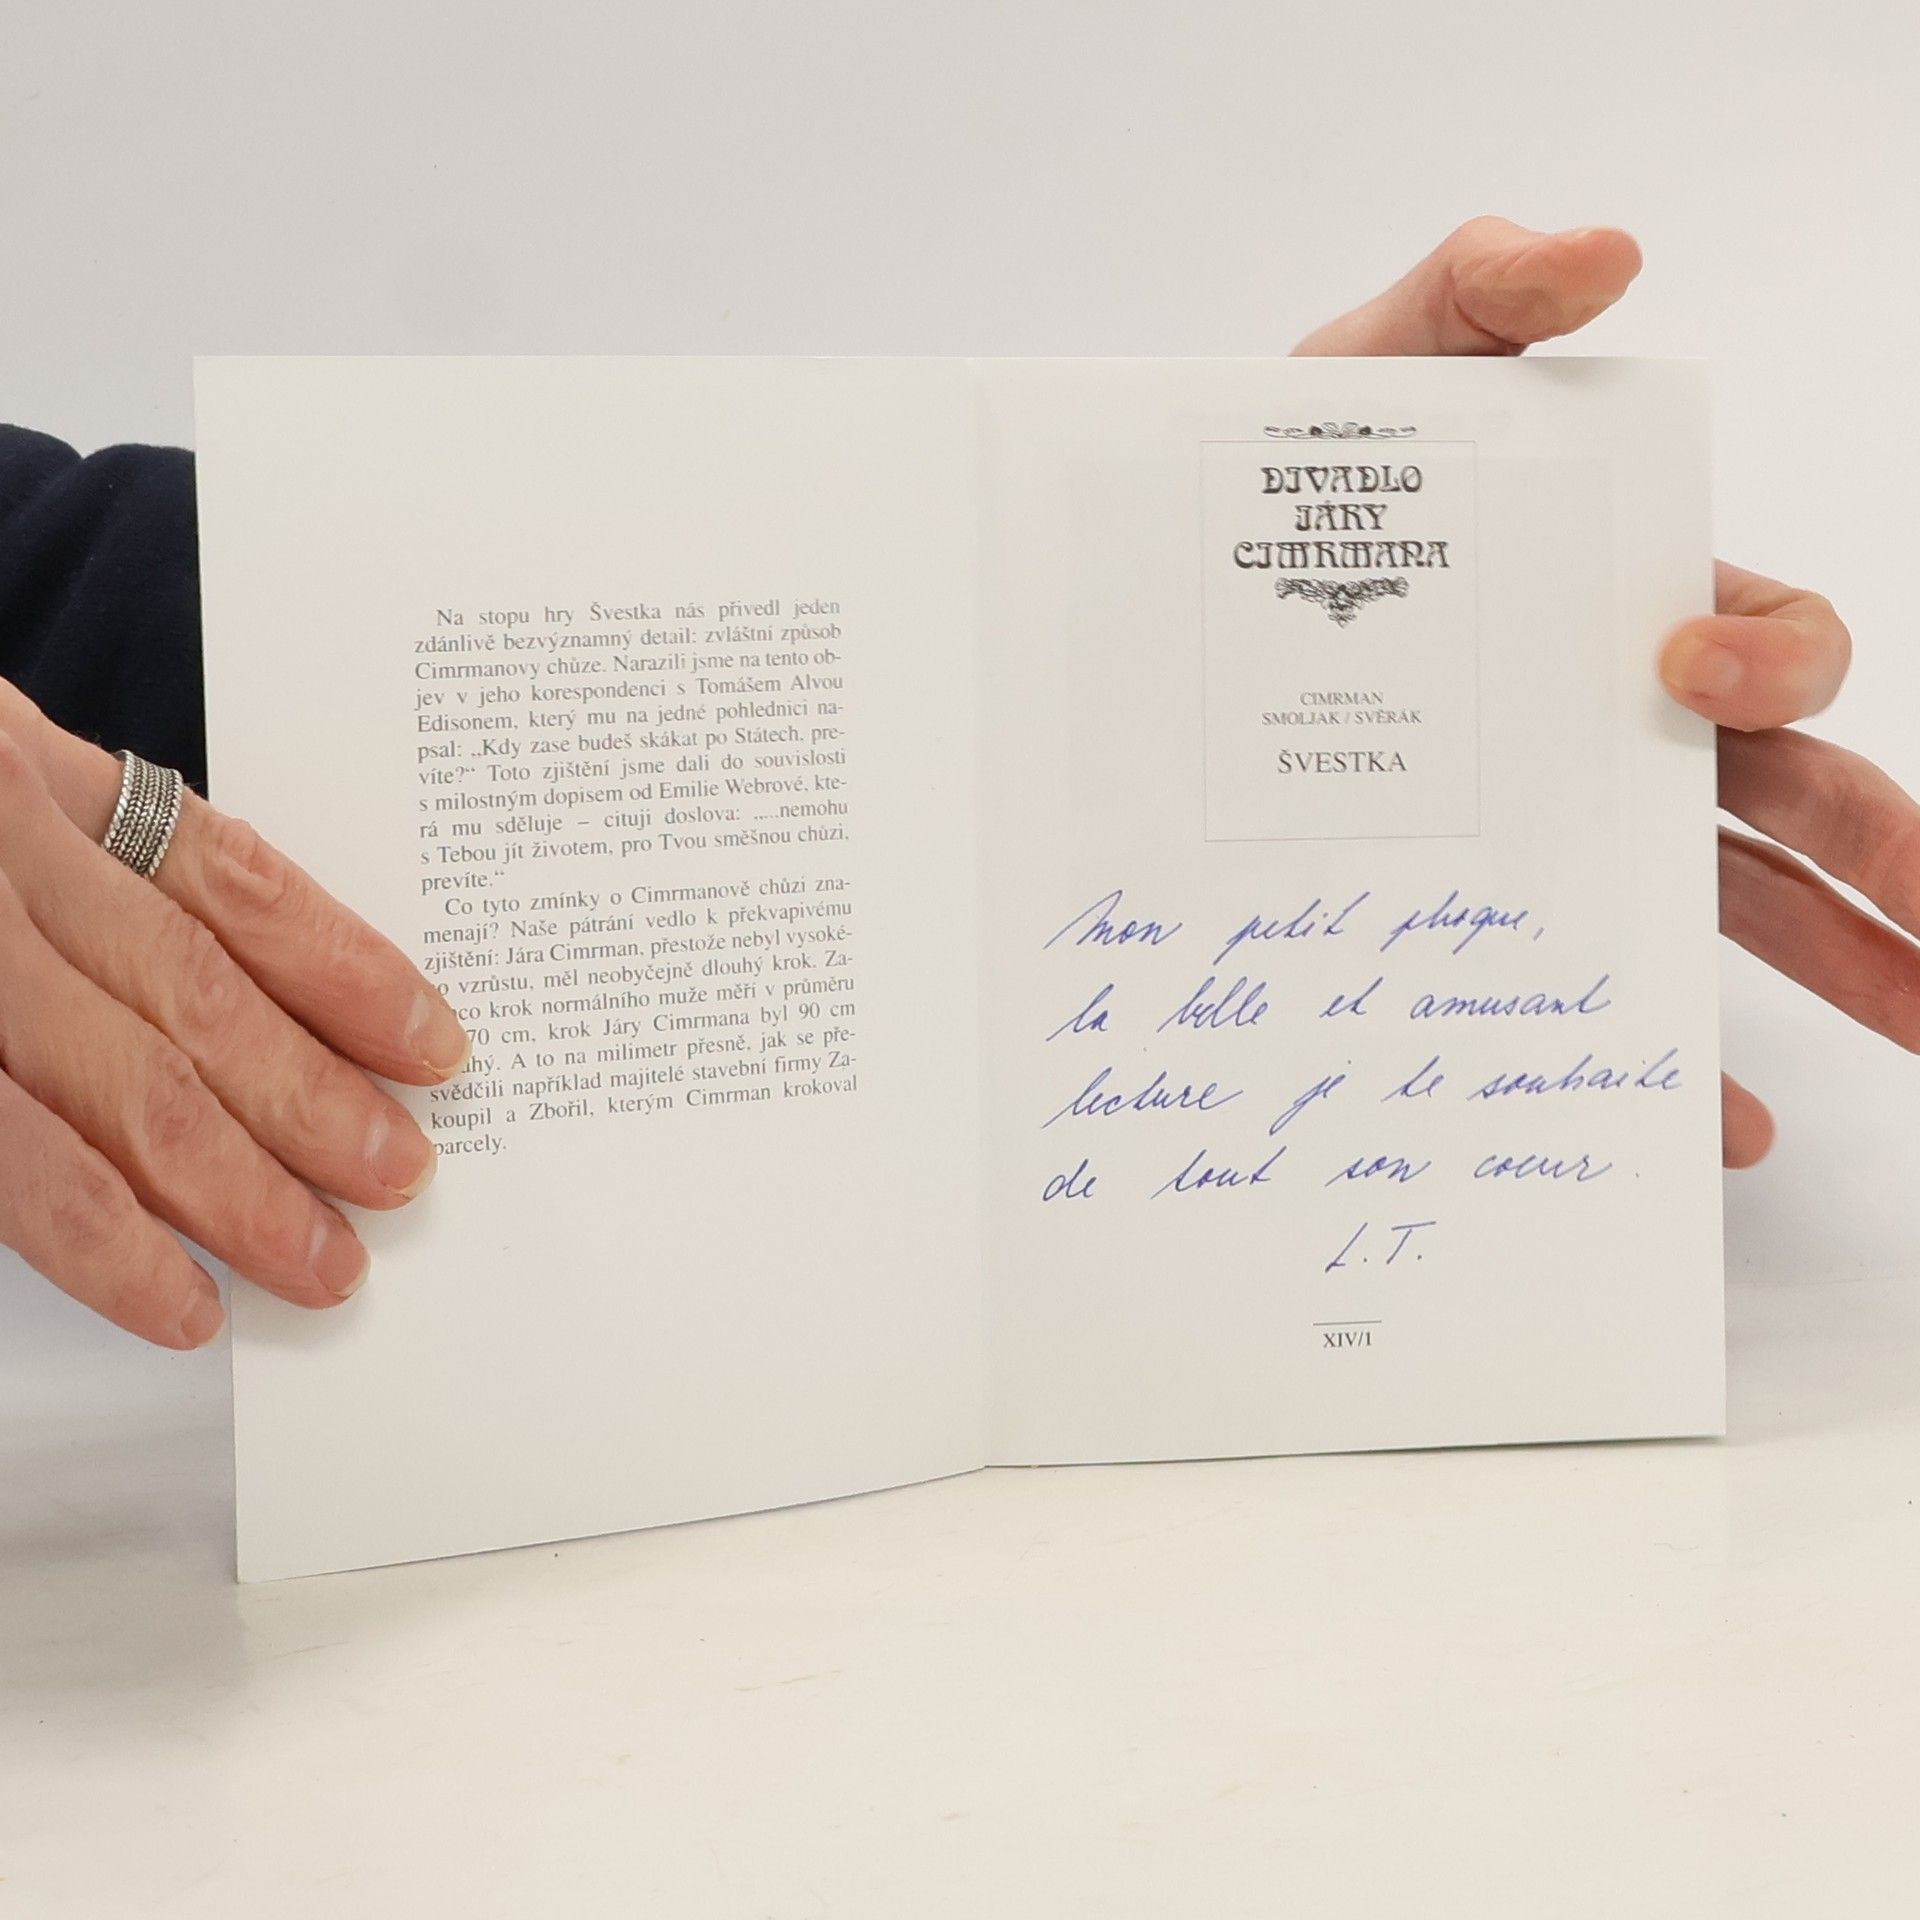 Na stopu hry Švestka nás přivedl jeden
zdánlivě bezvýznamný detail: zvláštní způsob
Cimrmanovy chůze. Narazili jsme na tento ob-
jev v jeho korespondenci s Tomášem Alvou
Edisonem, který mu na jedné pohlednici na-
psal: „Kdy zase budeš skákat po Státech, pre-
víte?“ Toto zjištění jsme dali do souvislosti
s milostným dopisem od Emilie Webrové, kte-
rá mu sděluje – cituji doslova: „...nemohu
s Tebou jít životem, pro Tvou směšnou chůzi,
prevíte.“
Co tyto zmínky o Cimrmanově chůzi zna-
menají? Naše pátrání vedlo k překvapivému
zjištění: Jára Cimrman, přestože nebyl vysoké-
o vzrůstu, měl neobyčejně dlouhý krok. Za-
co krok normálního muže měří v průměru
70 cm, krok Járy Cimrmana byl 90 cm
uhý. A to na milimetr přesně, jak se pře-
svědčili například majitelé stavební firmy Za-
koupil a Zbořil, kterým Cimrman krokoval
parcely.
DIVADLO
JÁRY
CIMRMANA
CIMRMAN
SMOLJAK / SVĚRÁK
ŠVESTKA
Mon petit phoque,
la belle et amusant
lecture je te souhaite
de tout son coeur.
L. T.
XIV/1